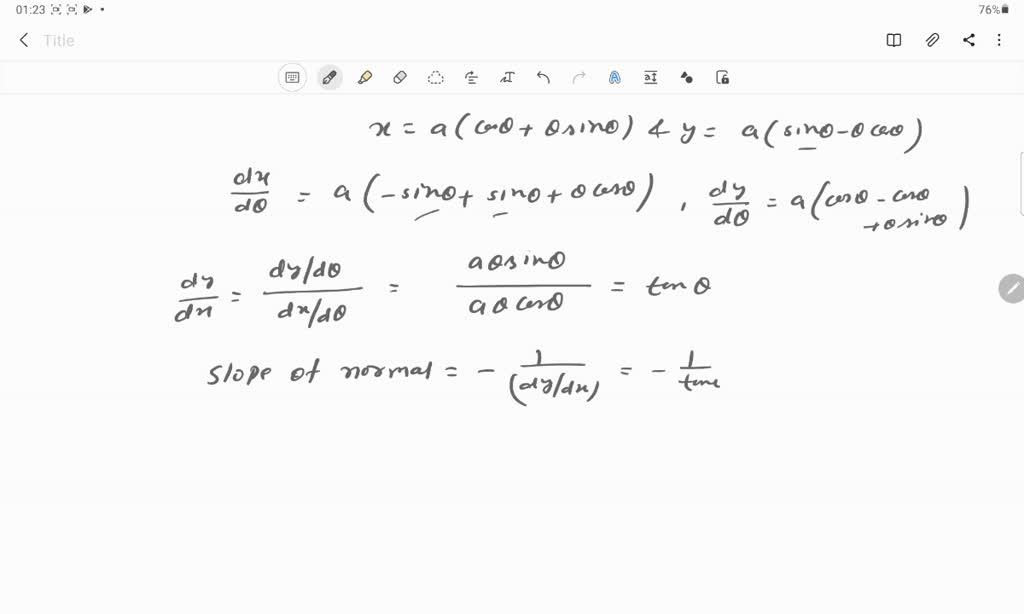 01:23 76%
Title
x = a(cosθ + θ sinθ) & y = a(sinθ - θ cosθ)
dx/dθ = a(-sinθ + sinθ + θ cosθ) , dy/dθ = a(cosθ - cosθ + θ sinθ)
dy/dx = (dy/dθ)/(dx/dθ) = aθ sinθ/aθ cosθ = tan θ
slope of normal = - 1/(dy/dx) = - 1/tan